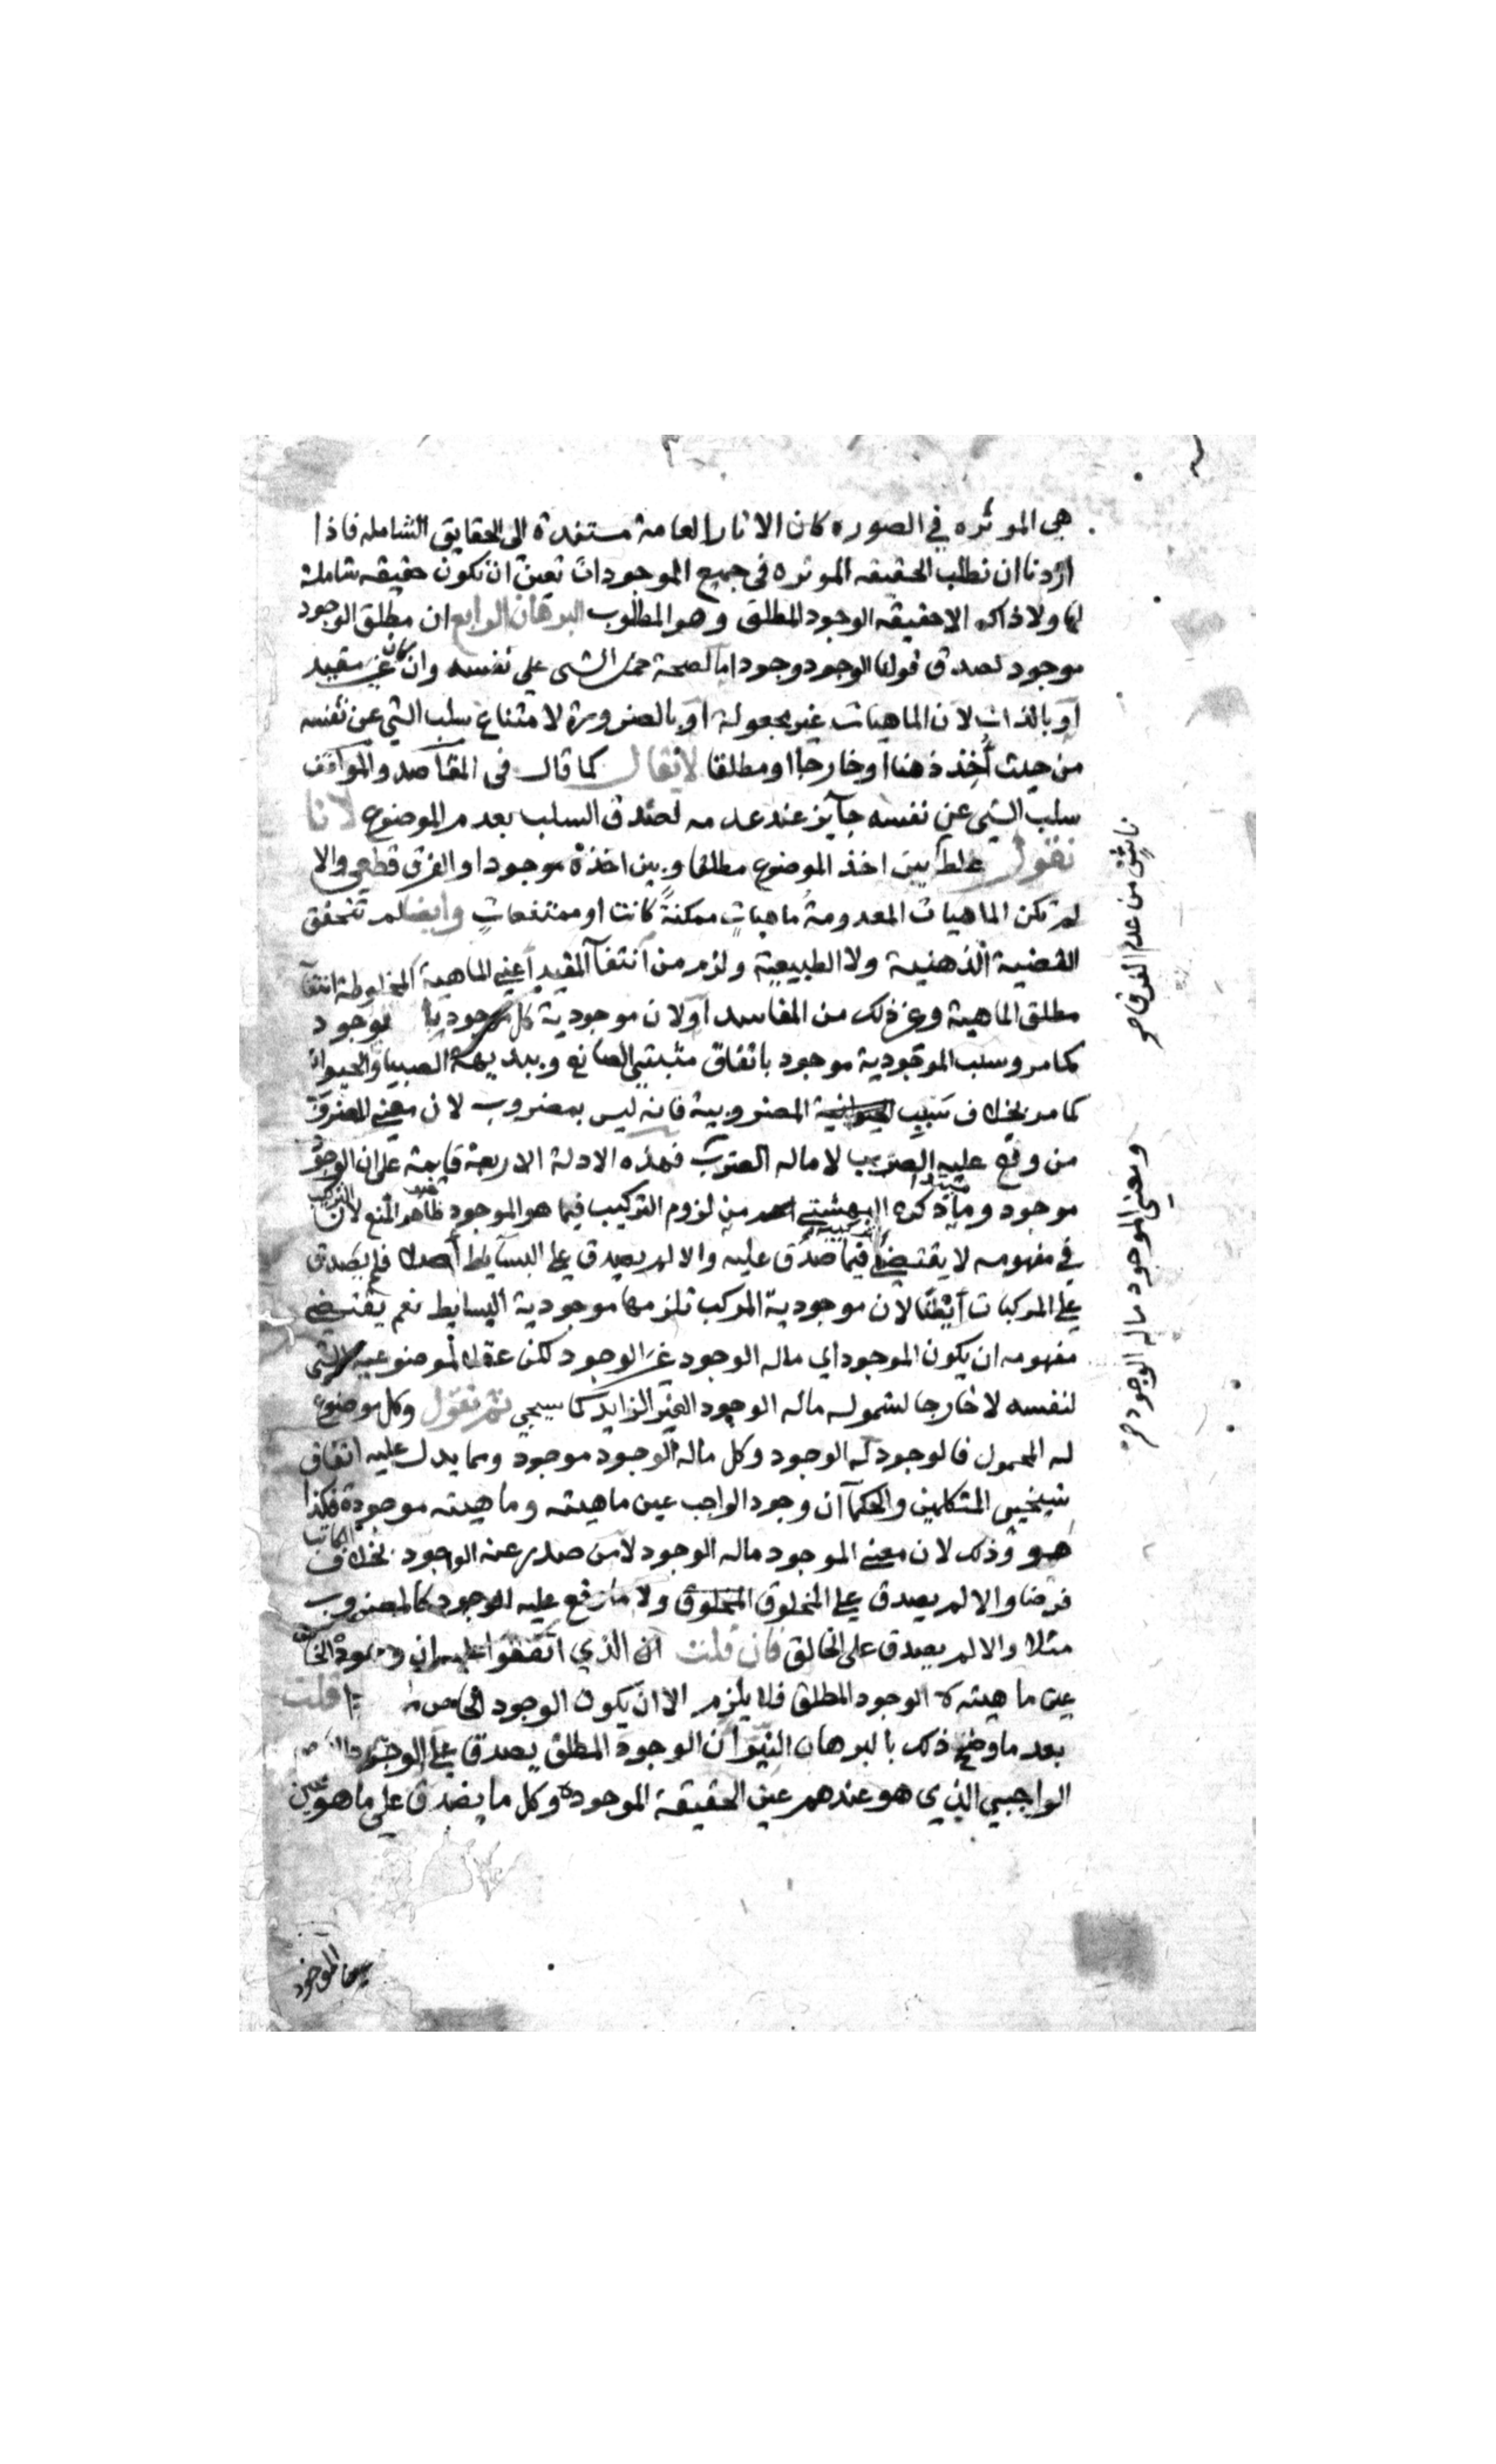 هي الموثره في الصوره كان الاثار العامة مستندة الى الحقايق الشامله فاذا
اردنا ان نطلب الحقيقه الموثره في جميع الموجودات تعين ان تكون حقيقه شاملة
لها ولا ذاك الا حقيقه الوجود المطلق وهو المطلوب البرهان الرابع ان مطلق الوجود
موجود لصدق قولنا الوجود وجود اما لصحة حمل الشى على نفسه وان كان غير مقيد
او بالذات لان الماهيات غير مجعولة او بالضرورة لامتناع سلب الشي عن نفسه
من حيث أخذ ذهنا او خارجا او مطلقا لا يقال كما قال في المقاصد والمواقف
سلب الشي عن نفسه جآيز عند عدمه لصدق السلب بعدم الموضوع لانا
نقول غلط بين اخذ الموضوع مطلقا وبين اخذه موجودا والفرق قطعي والا
لم تكن الماهيات المعدومة ماهيات ممكنةً كانت او ممتنعات وايضا لم تتحقق
القضية الذهنية ولا الطبيعية ولزم من انتفآ المقيد أعني الماهية المخلوطة انتفآ
مطلق الماهية وغير ذلك من المفاسد او لان موجودية كل بوجود
كما مر وسلب الموجودية موجود باتفاق مثبتي الصانع وببديهة الصبيان والحيوان
كما مر بخلاف سبب المضروبية فانه ليس بمضروب لان معنى المضروب
من وقع عليه الضرب لا ماله الضرب فهذه الادلة الاربعة قايمة على ان الوجود
موجود وما ذكره البهشتي من لزوم التركيب فيما هو الموجود ظاهر المنع لان التركيب
في مفهومه لا يقتضي فيما صدق عليه والا لم يصدق على البسآيط أصلا فلم يصدق
على المركبات أيضًا لان موجودية المركب تلزمها موجودية البسايط نعم يقتضي
مفهومه ان يكون الموجود اي ماله الوجود غير الوجود لكن عقلا لموضوعيه الشي
لنفسه لا خارجا لشموله ماله الوجود الغير الزايد كما سيجي ثم نقول وكل موضوع
له المحمول فالوجود له الوجود وكل ماله الوجود موجود ومما يدل عليه اتفاق
المتكلمين والحكمآ ان وجود الواجب عين ماهيته وماهيته موجودة فكذا
هو وذلك لان معنى الموجود ماله الوجود لا من صدر عنه الوجود بخلاف الكاتب
فرضا والا لم يصدق على المخلوق ولا ما وقع عليه الوجود كالمضروب
مثلا والا لم يصدق على الخالق فان قلت ان الذي اتفقوا عليه ان وجوده الخاص
عين ماهيته لا الوجود المطلق فلا يلزم الا ان يكون الوجود الخاص قلت
بعد ما وضح ذلك بالبرهان النير ان الوجود المطلق يصدق على الوجود الخاص
الواجبي الذي هو عندهم عين الحقيقة الموجودة وكل ما يصدق على ما هو عين
ناش من عدم الفرق صح
ومعنى الموجود ماله الوجود
الموجود